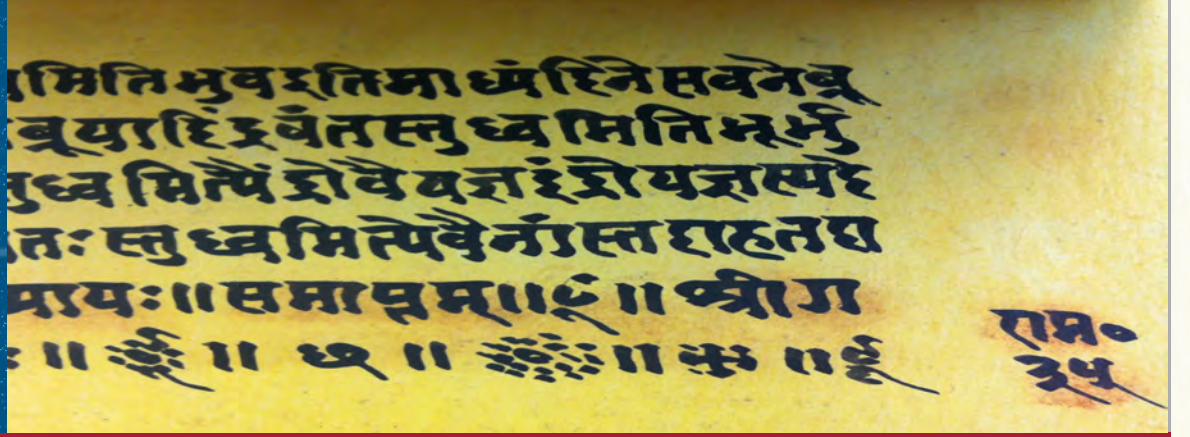 मितिभुवइतिमाध्यंदिनेसवनेब्रू
ब्रूयादिंद्रवंतस्तुध्वमितिभूर्भु
तुध्वमित्यैंद्रोवैयज्ञइंद्रोयज्ञस्यदे
तःस्तुध्वमित्येवैनांस्तदाहतदा
ध्यायः॥समाप्तम्॥ ॥श्रीरा
॥ ॥ छ ॥ ॥ ॥
राम०
३५